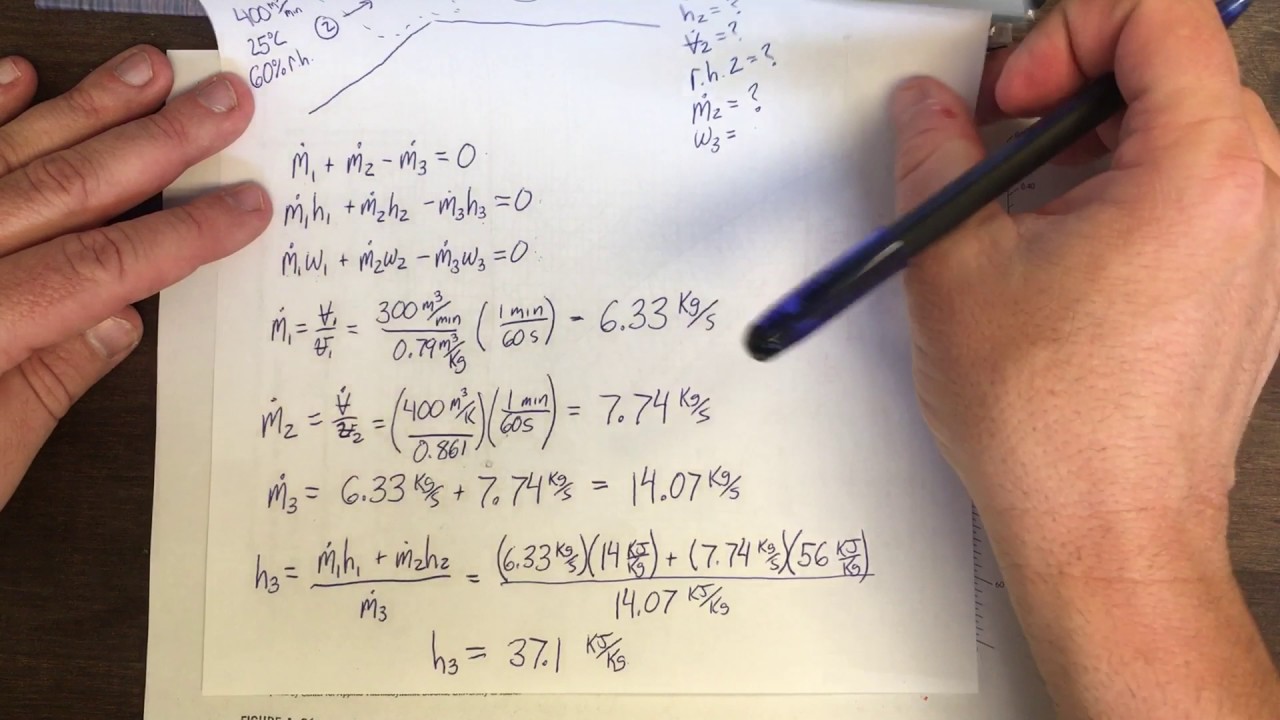 400 m³/min
②
25°C
60% r.h.
h₂ = ?
V̇₂ = ?
r.h. 2 = ?
ṁ₂ = ?
ω₃ =
ṁ₁ + ṁ₂ - ṁ₃ = 0
ṁ₁h₁ + ṁ₂h₂ - ṁ₃h₃ = 0
ṁ₁ω₁ + ṁ₂ω₂ - ṁ₃ω₃ = 0
ṁ₁ = V̇₁/v₁ = (300 m³/min)/(0.79 m³/Kg) (1 min/60 s) = 6.33 Kg/s
ṁ₂ = V̇/v₂ = (400 m³/K / 0.861)(1 min/60s) = 7.74 Kg/s
ṁ₃ = 6.33 Kg/s + 7.74 Kg/s = 14.07 Kg/s
h₃ = (ṁ₁h₁ + ṁ₂h₂)/ṁ₃ = ((6.33 Kg/s)(14 KJ/Kg) + (7.74 Kg/s)(56 KJ/Kg))/(14.07 KJ/Kg)
h₃ = 37.1 KJ/Kg